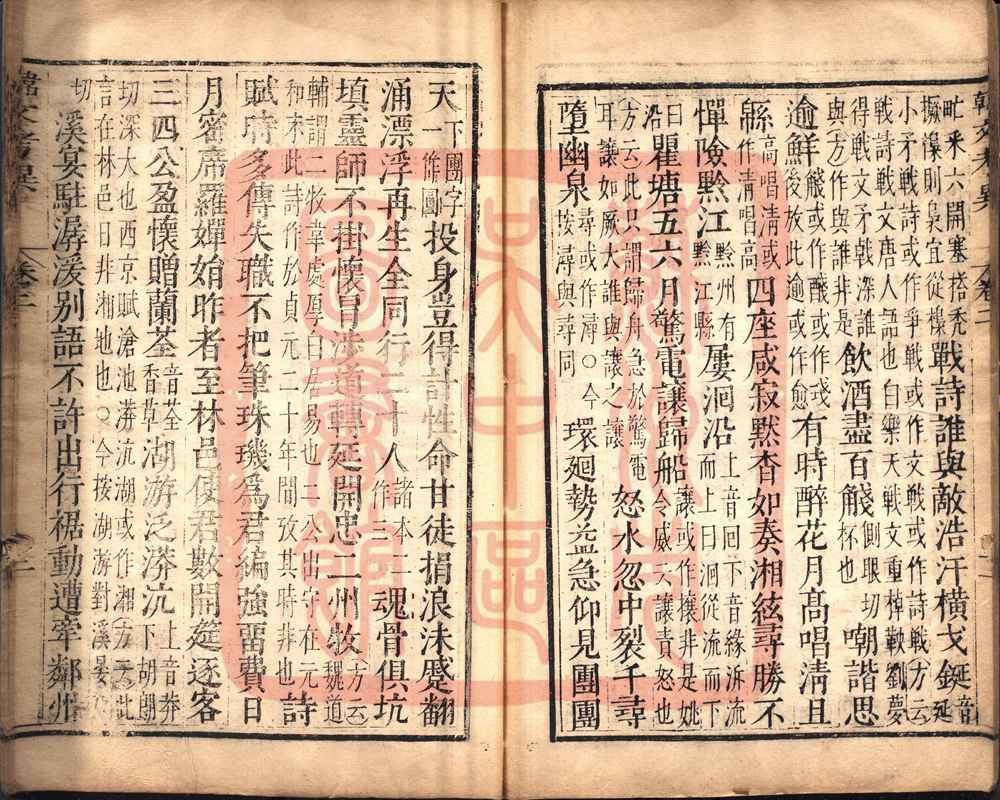 小矛戰詩或作爭戰或作文戰或作詩戰方云
戰詩誰與敵浩汗橫戈鋋音延
戰詩戰文唐人語也白樂天戰文重掉鞅劉夢
得戰文矛戟深誰與方作與誰非是飲酒盡百盞側眼切杯也嘲諧思
逾鮮有時醉花月高唱清且
緜高唱清或作清唱高四座咸寂默杳如奏湘絃尋勝不
憚險黔江黔州有黔江縣屢洄沿上音回下音緣泝流而上曰洄從流而下
曰沿瞿塘五六月驚電讓歸船讓或作攘非是姚令威云讓責怒也
方云此只謂歸舟急於驚電耳讓如厥大誰與讓之讓怒水忽中裂千尋
墮幽泉尋或作潯○今按潯與尋同環廻勢益急仰見團團
天下團字一作圓投身豈得計性命甘徒捐浪沫蹙翻
涌漂浮再生全同行二十人諸本二作三魂骨俱坑
填靈師不掛懷冒涉道轉延開忠二州牧方云魏道
輔謂二牧韋處厚白居易也二公出守在元和末此詩作於貞元二十年間攷其時非也詩
賦時多傳失職不把筆珠璣爲君編強留費日
月密席羅嬋娟昨者至林邑使君數開筵逐客
三四公盈懷贈蘭荃音荃香草湖游泛漭沆上音莽下胡朗
切深大也西京賦滄池漭沆湖或作湘方云此言在林邑日非湘地也○今按湖游對溪宴
切溪宴駐潺湲别語不許出行裾動遭牽鄰州
韓文考異 卷二